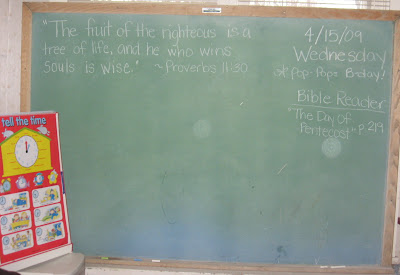 "The fruit of the righteous is a
tree of life, and he who wins
souls is wise." ~Proverbs 11:30
4/15/09
Wednesday
Pop-Pop's B-day!
Bible Reader
"The Day of
Pentecost" p.219
tell the time